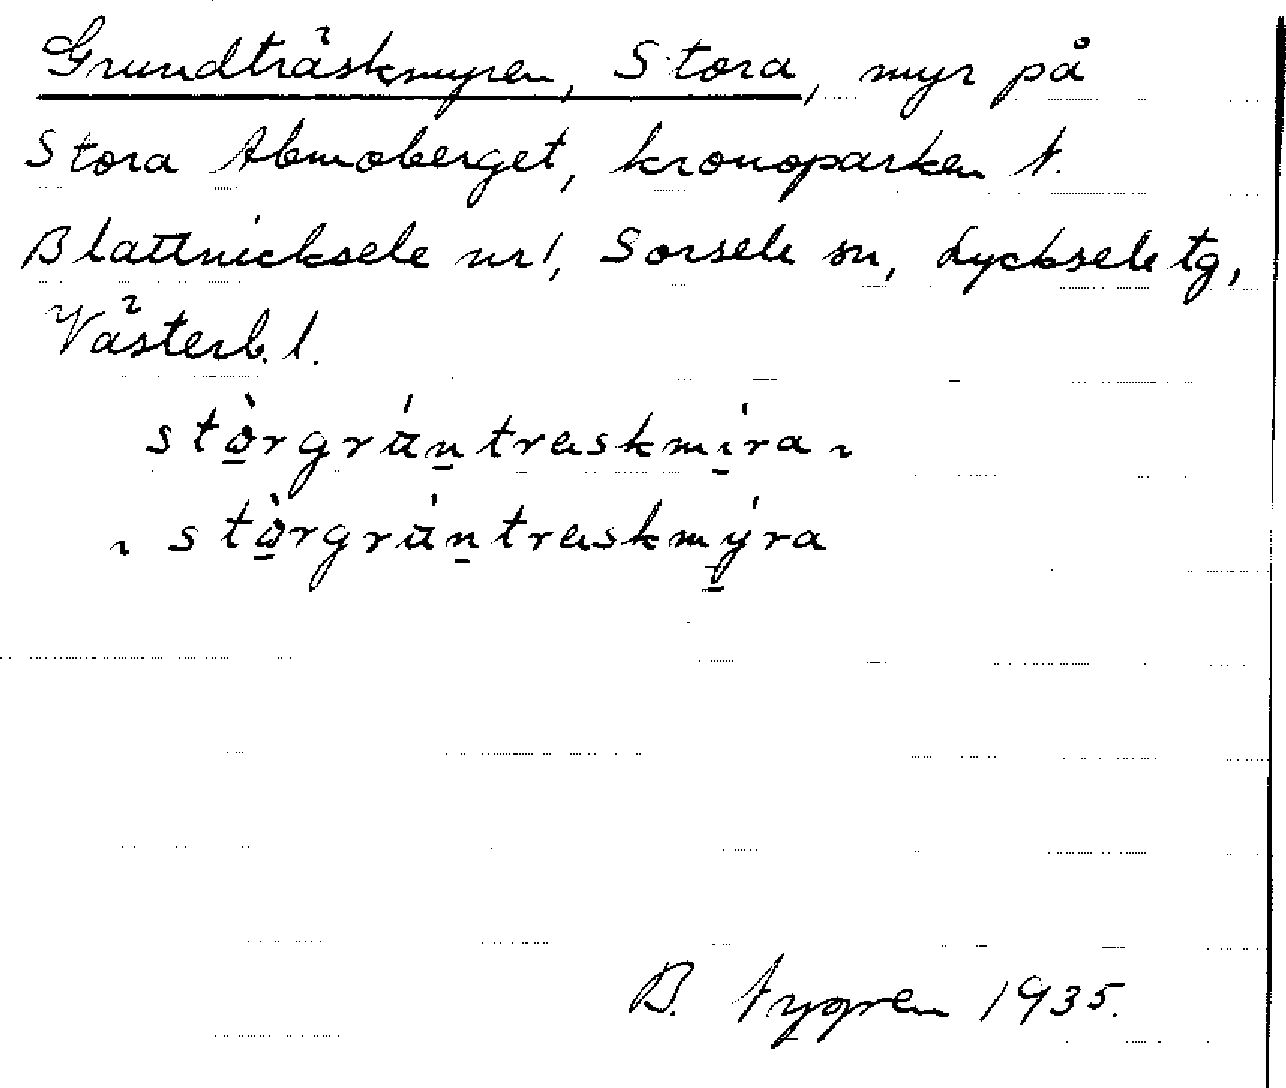 Grundträskmyren, Stora, myr på
Stora Abmoberget, kronoparken N.
Blattnicksele nr 1, Sorsele sn, Lycksele tg,
Västerb. l.
stò̠rgrúṉtraskmí̠ra ~
~ stò̠rgrúṉtraskmý̠ra
B. Nygren 1935.